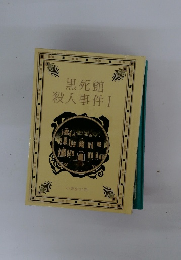 黒死館
殺人事件 I